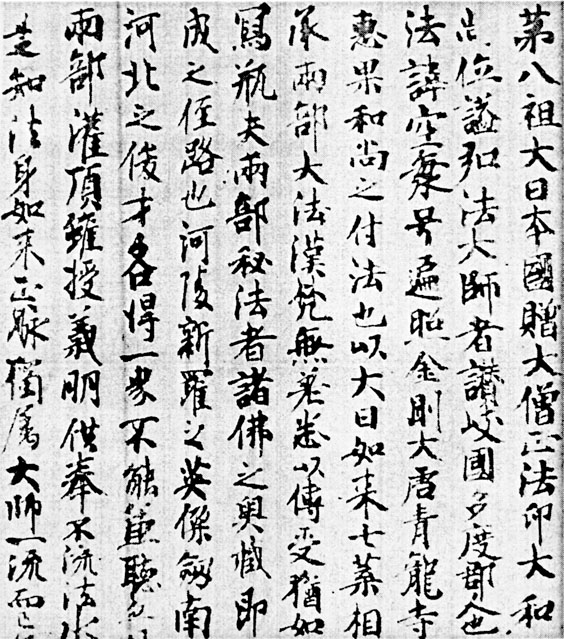 第八祖大日本國贈大僧正法印大和
尚位謚弘法大師者讃岐國多度郡人也
法諱空海号遍照金剛大唐青龍寺
惠果和尚之付法也以大日如来七葉相
承兩部大法漢梵無差悉以傳受猶如
寫瓶夫兩部秘法者諸佛之奥蔵即
成之侄路也河陵新羅之英傑劔南
河北之俊才各得一界不能兼聴
兩部灌頂雖授義明供奉不流法
是知法身如来正脉獨属大師一流而已